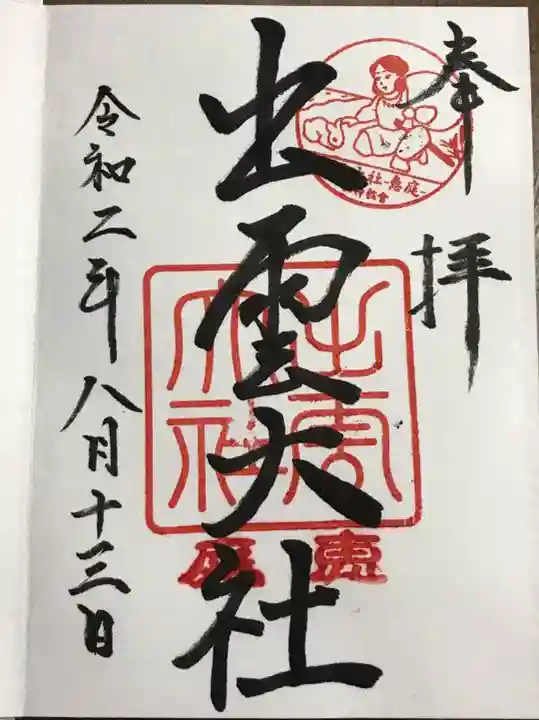 奉拝
社-恵庭-
出雲大社
出雲大社
恵庭
令和二年八月十三日